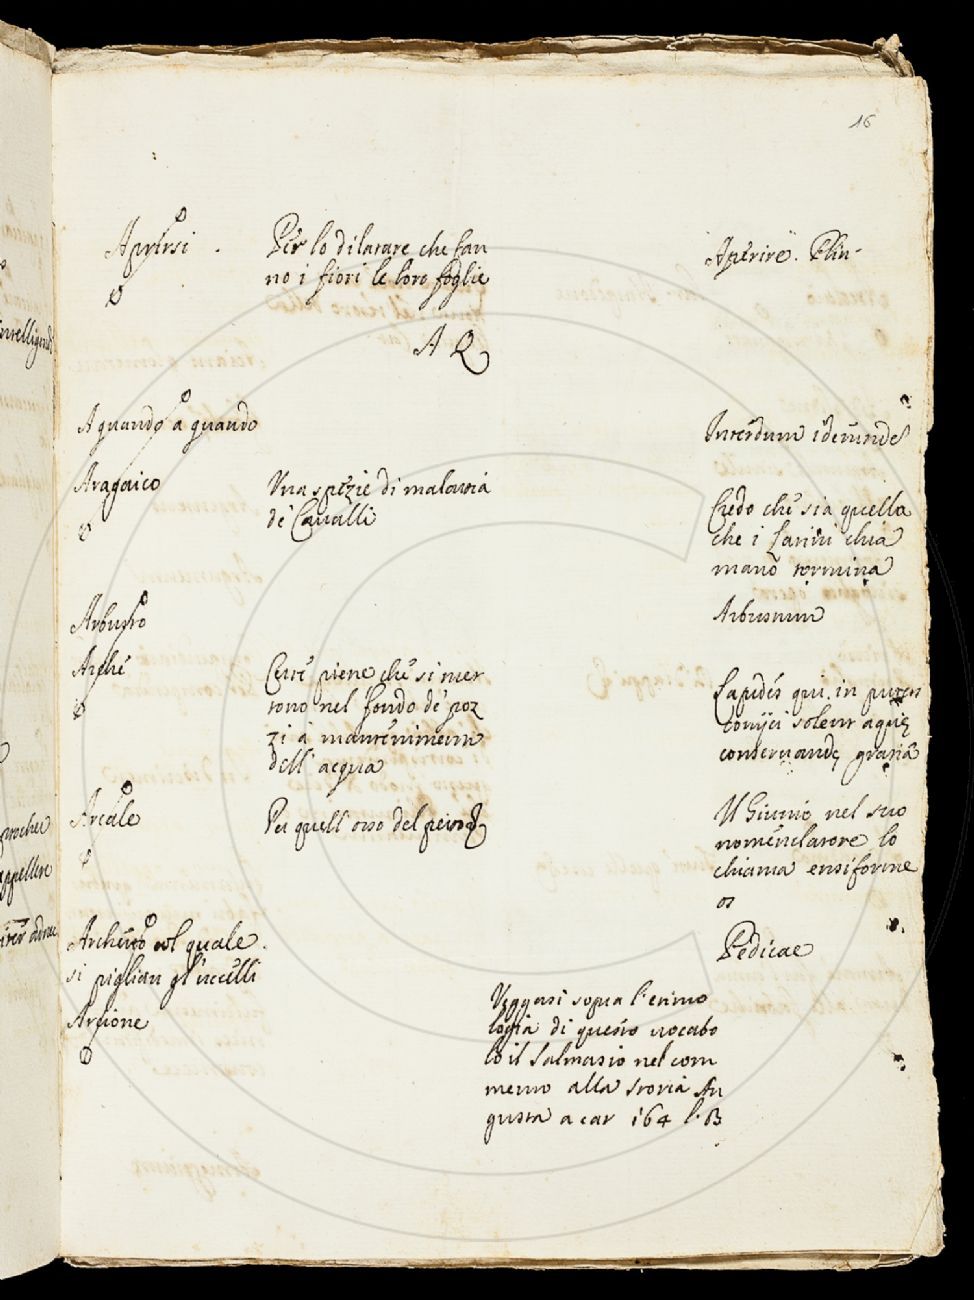 16
Aprirsi
Per lo dilatare che fan
no i fiori le loro foglie
Aperire. Plin.
A Q
A quando a quando
Interdum identide
Aragaico
Una spezie di malattia
de Cavalli
Credo che sia quella
che i Latini chia
mano tormina
Arbusto
Arbustum
Arche
Certe pietre che si met
tono nel fondo de poz
zi a mantenimento
dell' acqua
Lapides qui in puteu
conijci solent aquę
conseruandę gratia
Arcale
Per quell' osso del petto
Il Giunio nel suo
nomenclatore lo
chiama ensiforme
os
Archetto col quale
si piglian gl'uccelli
Pedicae
Arcione
Veggasi sopra l'etimo
logia di questo vocabo
lo il Salmasio nel com
mento alla storia Au
gusta a car 164 l. B
intelligendi
appellere